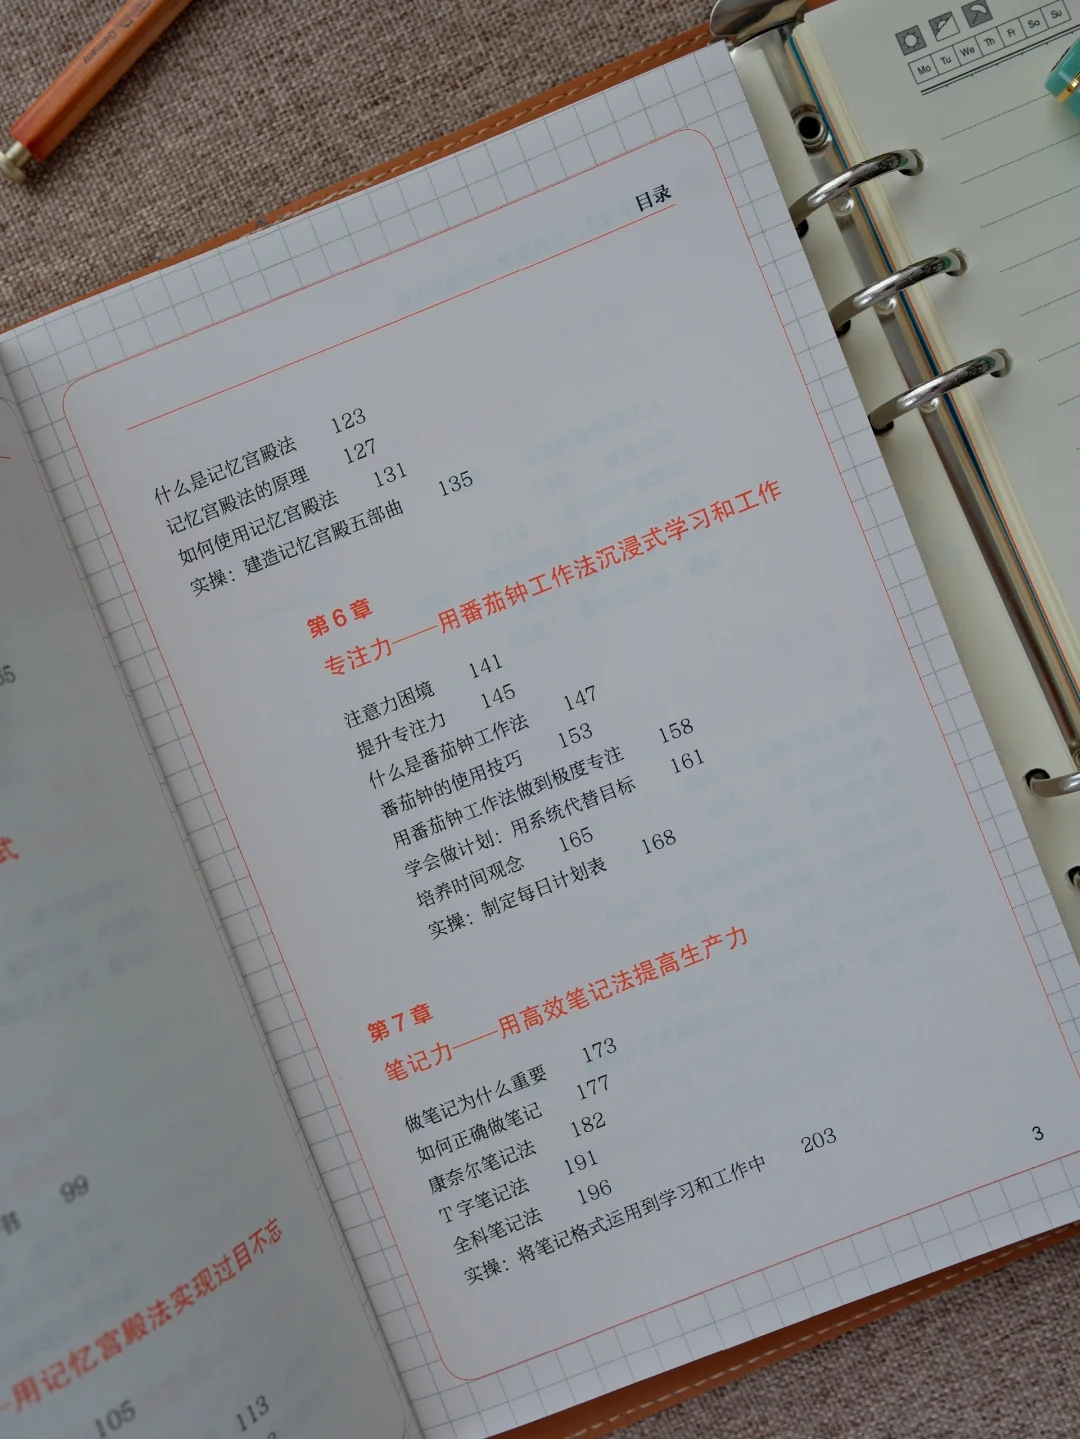 Germany
Mo Tu We Th Fr Sa Su
55
式
书 99
用记忆宫殿法实现过目不忘
105
113
目录
什么是记忆宫殿法 123
记忆宫殿法的原理 127
如何使用记忆宫殿法 131
实操：建造记忆宫殿五部曲 135
第6章
专注力——用番茄钟工作法沉浸式学习和工作
注意力困境 141
提升专注力 145
什么是番茄钟工作法 147
番茄钟的使用技巧 153
用番茄钟工作法做到极度专注 158
学会做计划：用系统代替目标 161
培养时间观念 165
实操：制定每日计划表 168
第7章
笔记力——用高效笔记法提高生产力
做笔记为什么重要 173
如何正确做笔记 177
康奈尔笔记法 182
T字笔记法 191
全科笔记法 196
实操：将笔记格式运用到学习和工作中 203
3